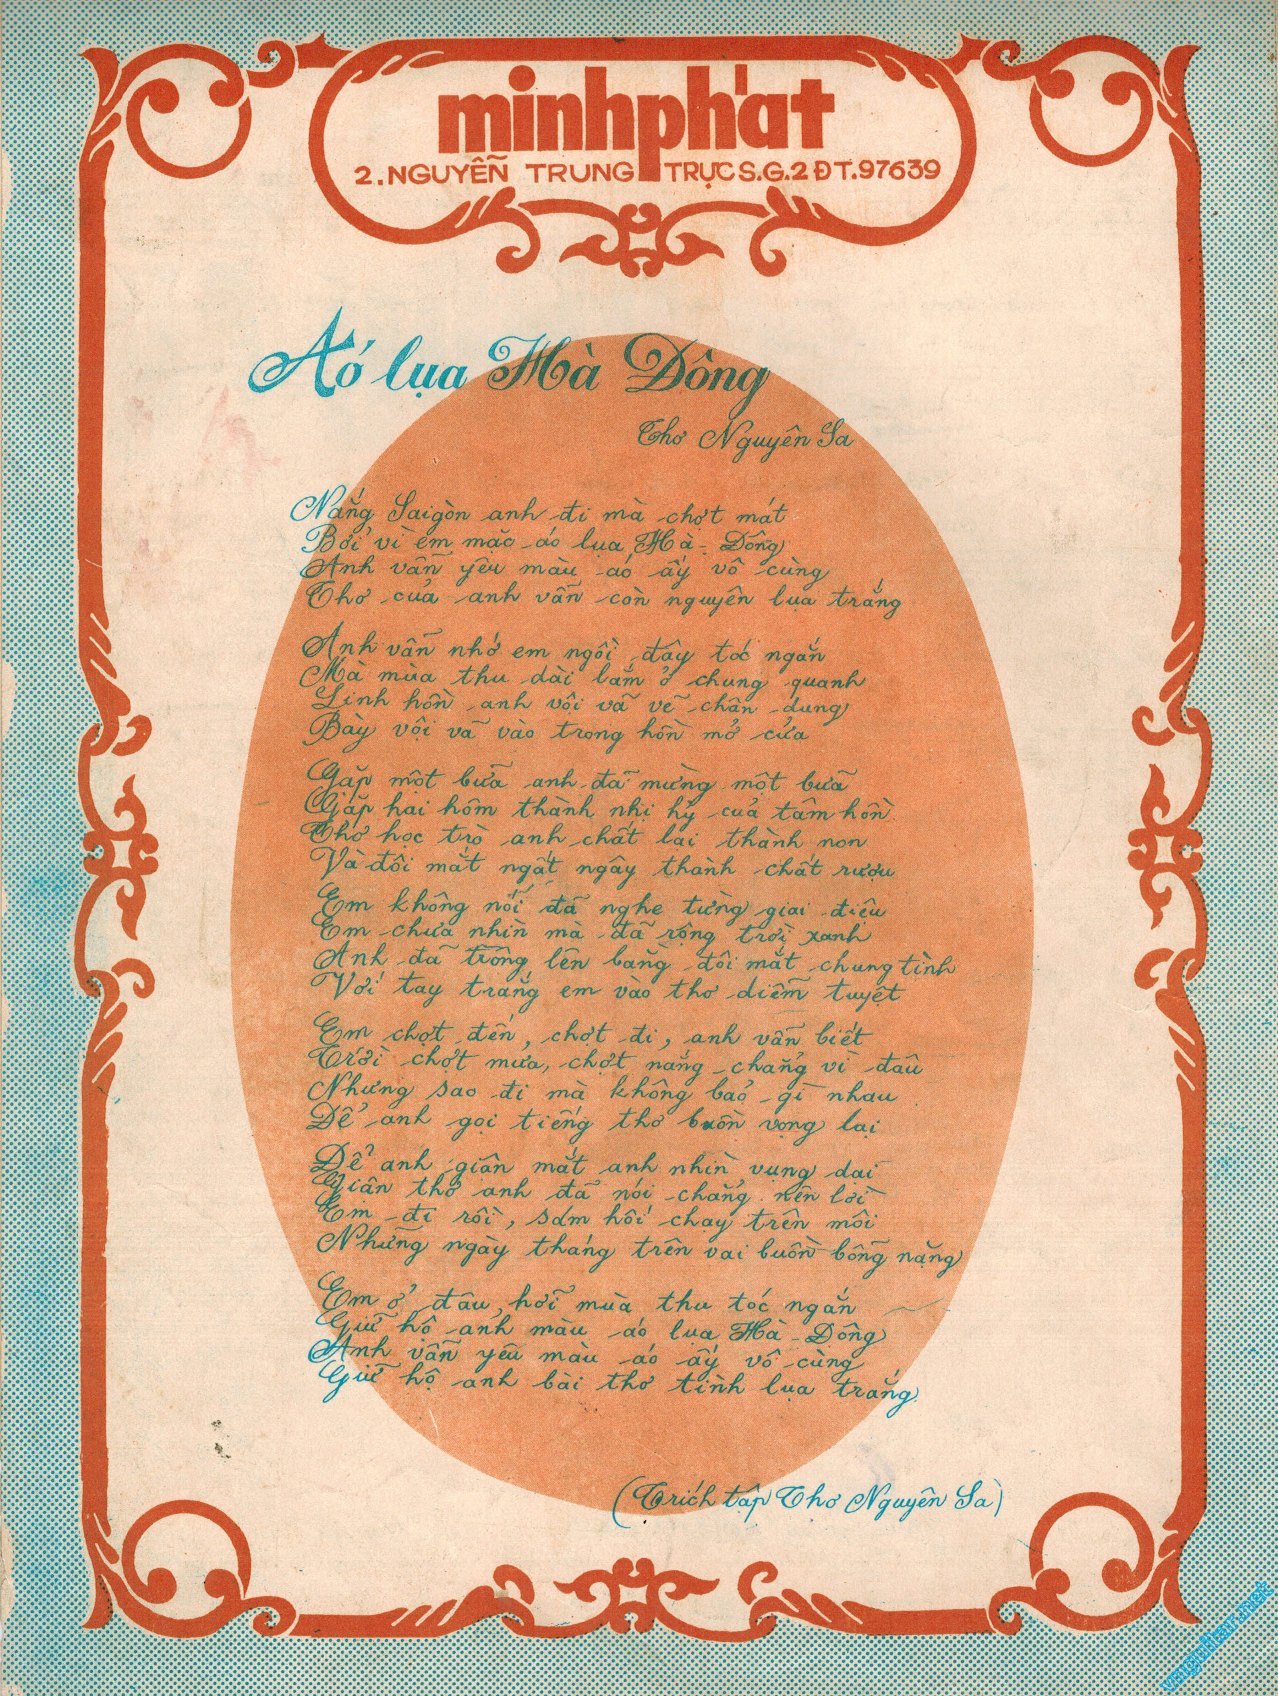 minhphát
2.NGUYỄN TRUNG TRỰC S.G.2 ĐT.97639
Áo lụa Hà Đông
Thơ Nguyên Sa
Nắng Saigòn anh đi mà chợt mát
Bởi vì em mặc áo lụa Hà-Đông
Anh vẫn yêu màu áo ấy vô cùng
Thơ của anh vẫn còn nguyên lụa trắng
Anh vẫn nhớ em ngồi đây tóc ngắn
Mà mùa thu dài lắm ở chung quanh
Linh hồn anh vội vã vẽ chân dung
Bày vội vã vào trong hồn mở cửa
Gặp một bữa anh đã mừng một bữa
Gặp hai hôm thành nhị hỷ của tâm hồn
Thơ học trò anh chất lại thành non
Và đôi mắt ngất ngây thành chất rượu
Em không nói đã nghe từng giai điệu
Em chưa nhìn mà đã rộng trời xanh
Anh đã trông lên bằng đôi mắt chung tình
Với tay trắng em vào thơ diễm tuyệt
Em chợt đến, chợt đi, anh vẫn biết
Trời chợt mưa, chợt nắng chẳng vì đâu
Nhưng sao đi mà không bảo gì nhau
Để anh gọi tiếng thơ buồn vọng lại
Để anh giận mắt anh nhìn vụng dại
Giận thơ anh đã nói chẳng nên lời
Em đi rồi, sám hối chạy trên môi
Những ngày tháng trên vai buồn bỗng nặng
Em ở đâu, hỡi mùa thu tóc ngắn
Giữ hộ anh màu áo lụa Hà-Đông
Anh vẫn yêu màu áo ấy vô cùng
Giữ hộ anh bài thơ tình lụa trắng
(Trích tập Thơ Nguyên Sa)